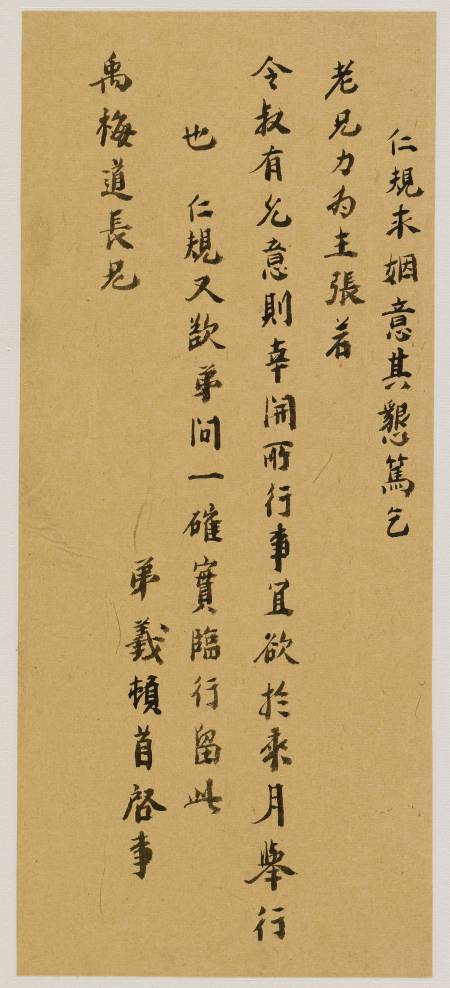 仁規求姻意其懇篤乞
老兄力为主張若
令叔有允意則幸開所行事宜欲於來月舉行
也 仁規又欲弟问一確實臨行留此
弟義頓首啓事
禹梅道長兄